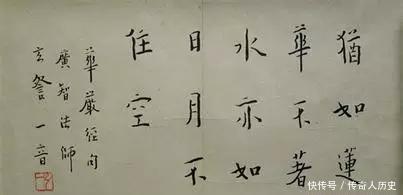 猶如蓮
華不著
水亦如
日月不
住空
華嚴經句
廣智法師
一音
快传号/传奇人历史